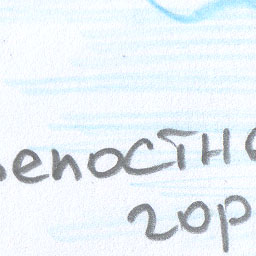 репостно
гор